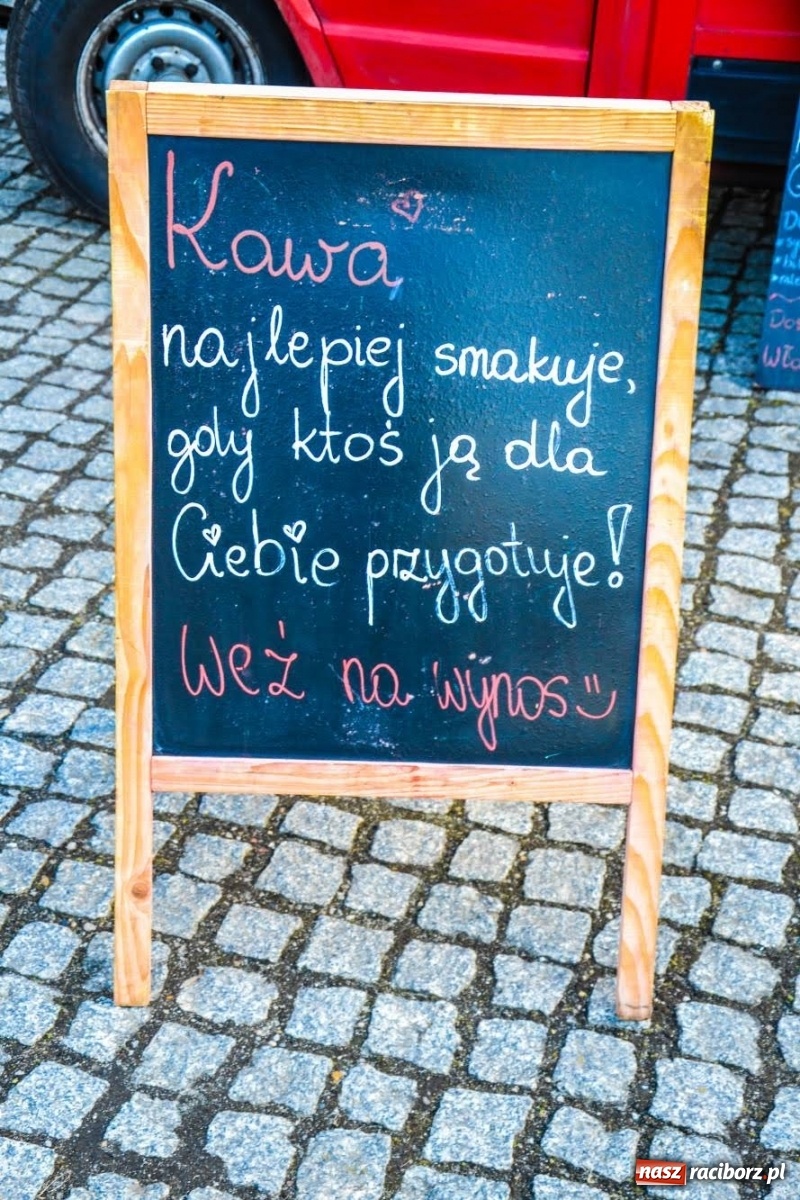 Kawa
najlepiej smakuje,
gdy ktoś ją dla
Ciebie przygotuje!
Weź na wynos
nasz raciborz.pl